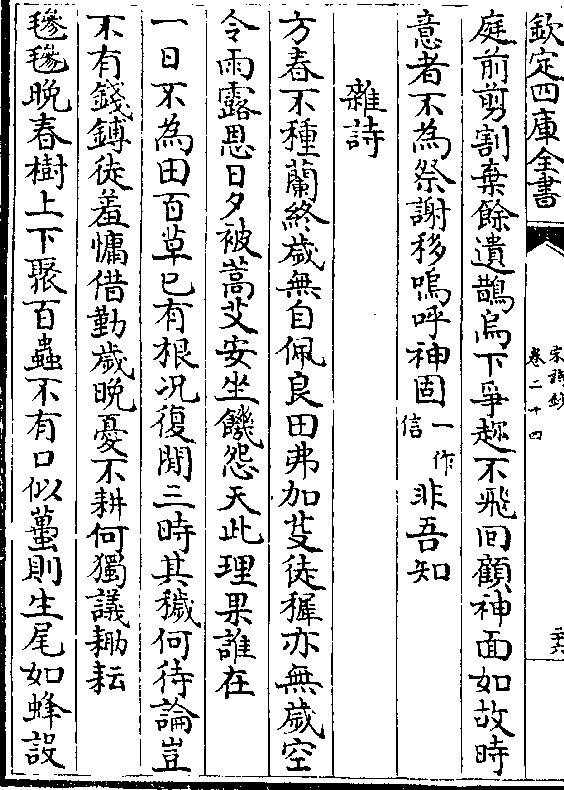 欽定四庫全書
宋詩鈔
卷二十四
二十六
庭前剪割棄餘遺鵲烏下爭趂不飛回顧神面如故時
意者不為祭謝移嗚呼神固一作信非吾知
雜詩
方春不種蘭終歲無自佩良田弗加芟徒穉亦無歲空
令雨露恩日夕被蒿艾安坐饑怨天此理果誰在
一日不為田百草已有根况復閒三時其穢何待論豈
不有錢鎛徒羞慵借勤歲晚憂不耕何獨議耡耘
毿毿晚春樹上下聚百蟲不有口似蠆則生尾如蜂設